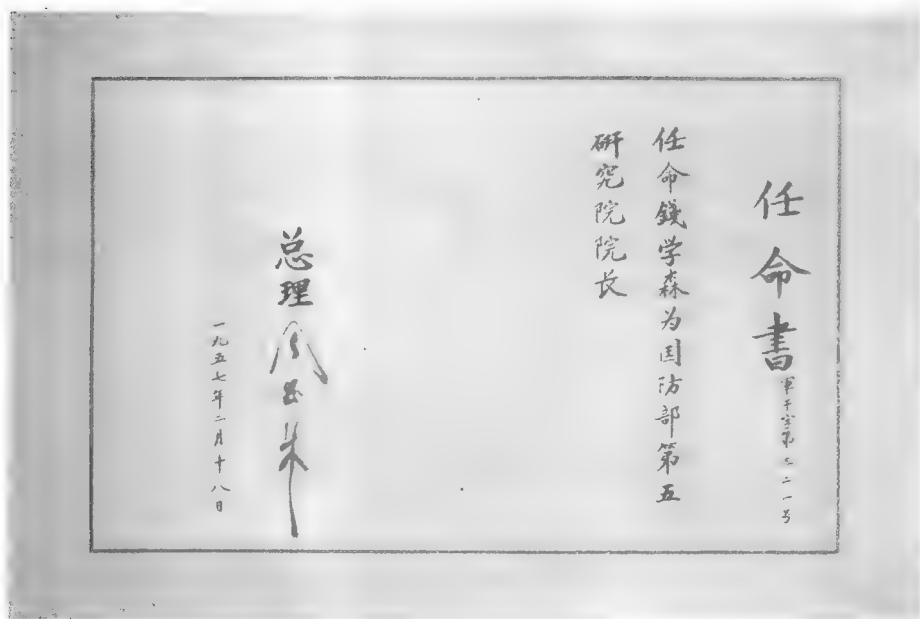 任命書
軍干字第〇二一号
任命錢学森为国防部第五
研究院院长
总理 周恩来
一九五七年二月十八日